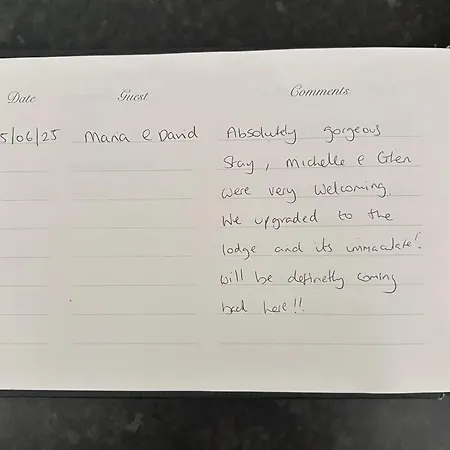 Date Guest Comments
5/06/25 Maria & David Absolutely gorgeous
Stay, Michelle & Glen
were very welcoming.
We upgraded to the
lodge and its immaculate!
will be definetly coming
back here!!